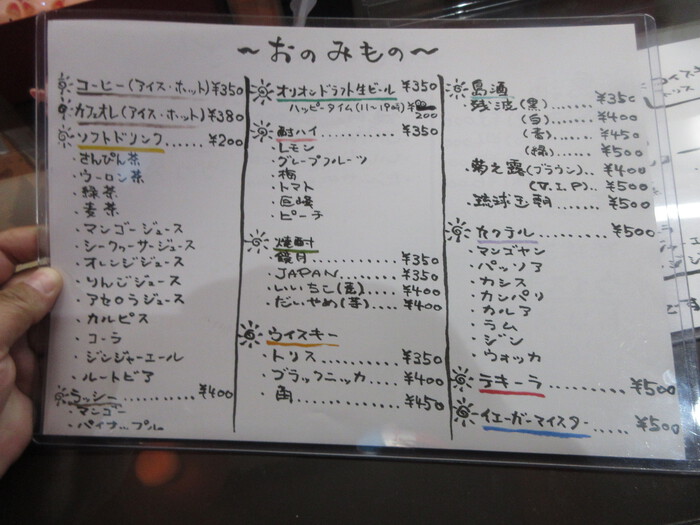 ～おのみもの～
コーヒー(アイス・ホット)¥350
カフェオレ(アイス・ホット)¥380
ソフトドリンク......¥200
・さんぴん茶
・ウーロン茶
・緑茶
・麦茶
・マンゴージュース
・シークヮーサージュース
・オレンジジュース
・りんごジュース
・アセロラジュース
・カルピス
・コーラ
・ジンジャーエール
・ルートビア
ラッシー..........¥400
・マンゴー
・パイナップル
オリオンドラフト生ビール....¥350
ハッピータイム(11～19時)¥200
酎ハイ..............¥350
・レモン
・グレープフルーツ
・梅
・トマト
・巨峰
・ピーチ
焼酎
・鏡月..............¥350
・JAPAN............¥350
・いいちこ(麦)....¥400
・だいやめ(芋)....¥400
ウイスキー
・トリス..........¥350
・ブラックニッカ....¥400
・角..............¥450
島酒
・残波(黒)......¥350
(白)......¥400
(香)......¥450
(緑)......¥500
・菊之露(ブラウン)..¥400
(V.I.P)....¥500
・琉球王朝......¥500
カクテル..........¥500
・マンゴヤン
・パッソア
・カシス
・カンパリ
・カルア
・ラム
・ジン
・ウォッカ
テキーラ..........¥500
イエーガーマイスター.....¥500